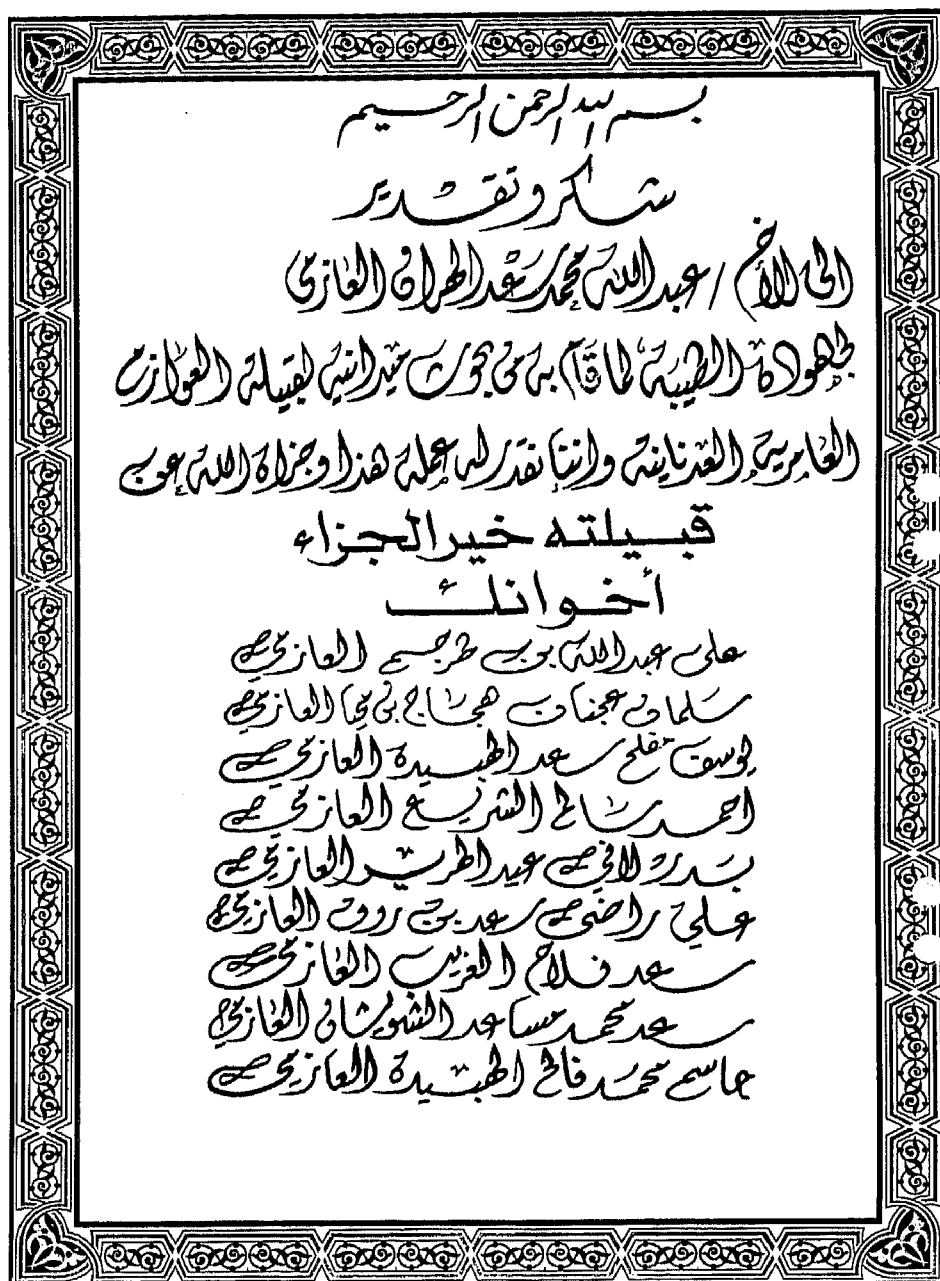 بسم الله الرحمن الرحيم
شكر وتقدير
الى الأخ / عبدالله محمد سعد الهران العازمي
لجهوده الطيبة لما قام به من بحوث ميدانية لقبيلة العوازم
العامرية العدنانية واننا نقدر له عمله هذا وجزاه الله عن
قبيلته خير الجزاء
أخوانك
على عبدالله بن طرجم العازمي
سلمان عجنان هجاج بن محيا العازمي
يوسف مفلح سعد الهبيدة العازمي
احمد سالم الشريع العازمي
بدر لافي عيد العازمي
علي راضي سعد بن روق العازمي
سعد فلاح الغريب العازمي
سعد محمد مساعد الشويشان العازمي
جاسم محمد فالح الهبيدة العازمي